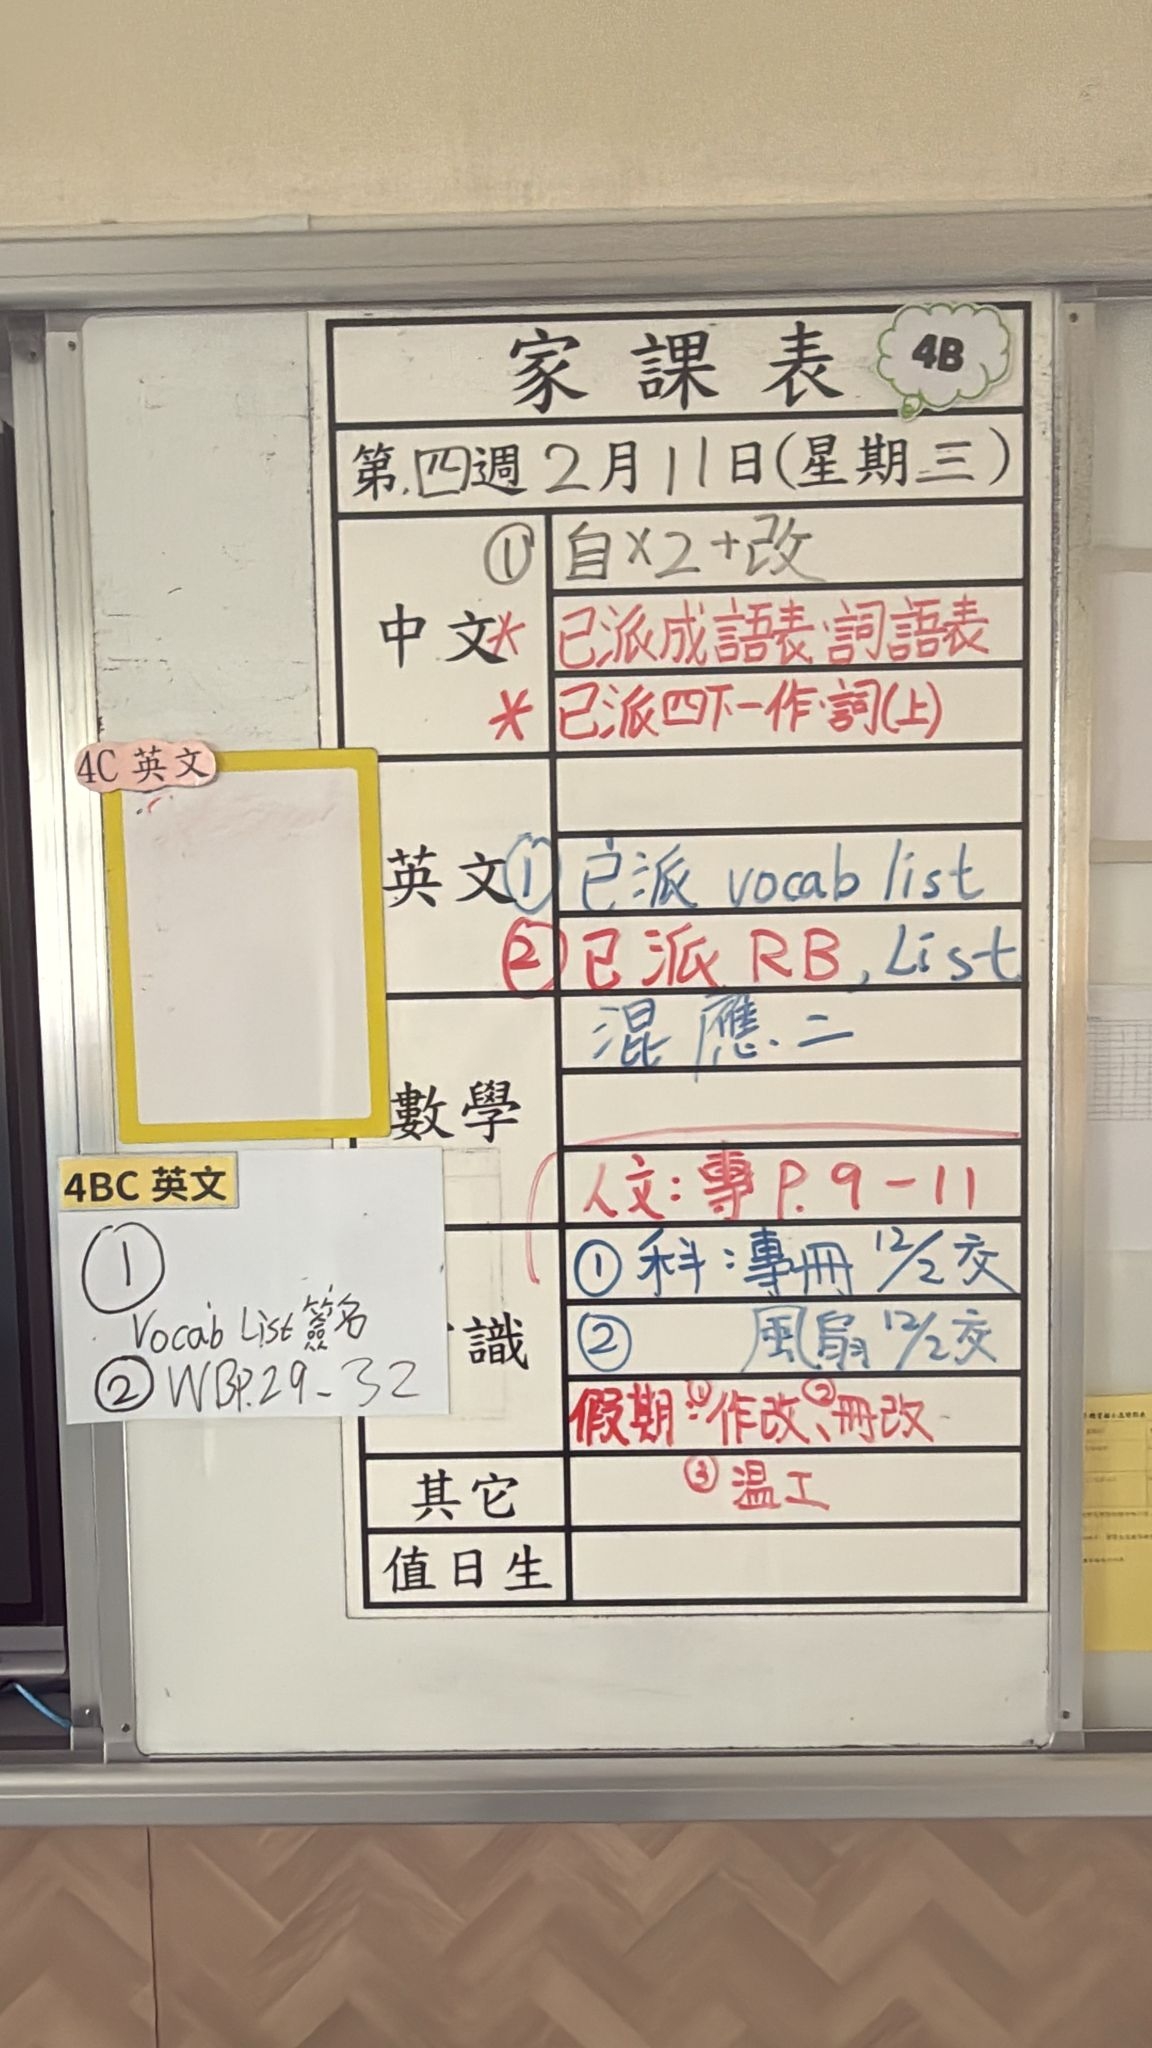 家課表 4B
第四週2月11日(星期三)
中文
① 自×2+改
* 已派成語表.詞語表
* 已派四下一作.詞(上)
英文
① 已派 vocab list
② 已派 RB, List
數學
混應.二
人文：專P.9-11
識
① 科：專冊 12/2交
② 風扇 12/2交
假期：①作改、②冊改
③溫工
其它
值日生
4C 英文
4BC 英文
①
Vocab List 簽名
② WBP.29-32